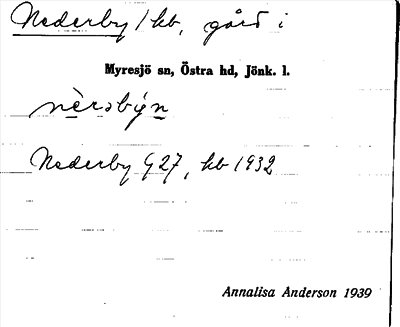 Nederby 1 kb, gård i
Myresjö sn, Östra hd, Jönk. l.
nèrəbýn
Nederby G27, kb 1932
Annalisa Anderson 1939